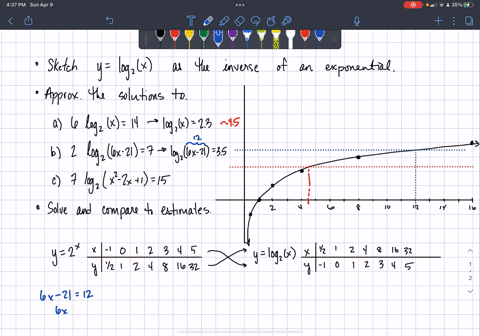 4:37 PM  Sun Apr 9
25%
• Sketch y = log₂(x) as the inverse of an exponential.
• Approx. the solutions to.
a) 6 log₂(x) = 14 → log₂(x) = 2.3 ~
12
b) 2 log₂(6x-21) = 7 → log₂(6x-21) = 3.5
c) 7 log₂(x²-2x+1) = 15
2 4 6 8 10 12 14 16
• Solve and compare to estimates.
y = 2ˣ x | -1 0 1 2 3 4 5 y = log₂(x) x | 1/2 1 2 4 8 16 32
y | 1/2 1 2 4 8 16 32 y | -1 0 1 2 3 4 5
6x - 21 = 12
6x
1
2